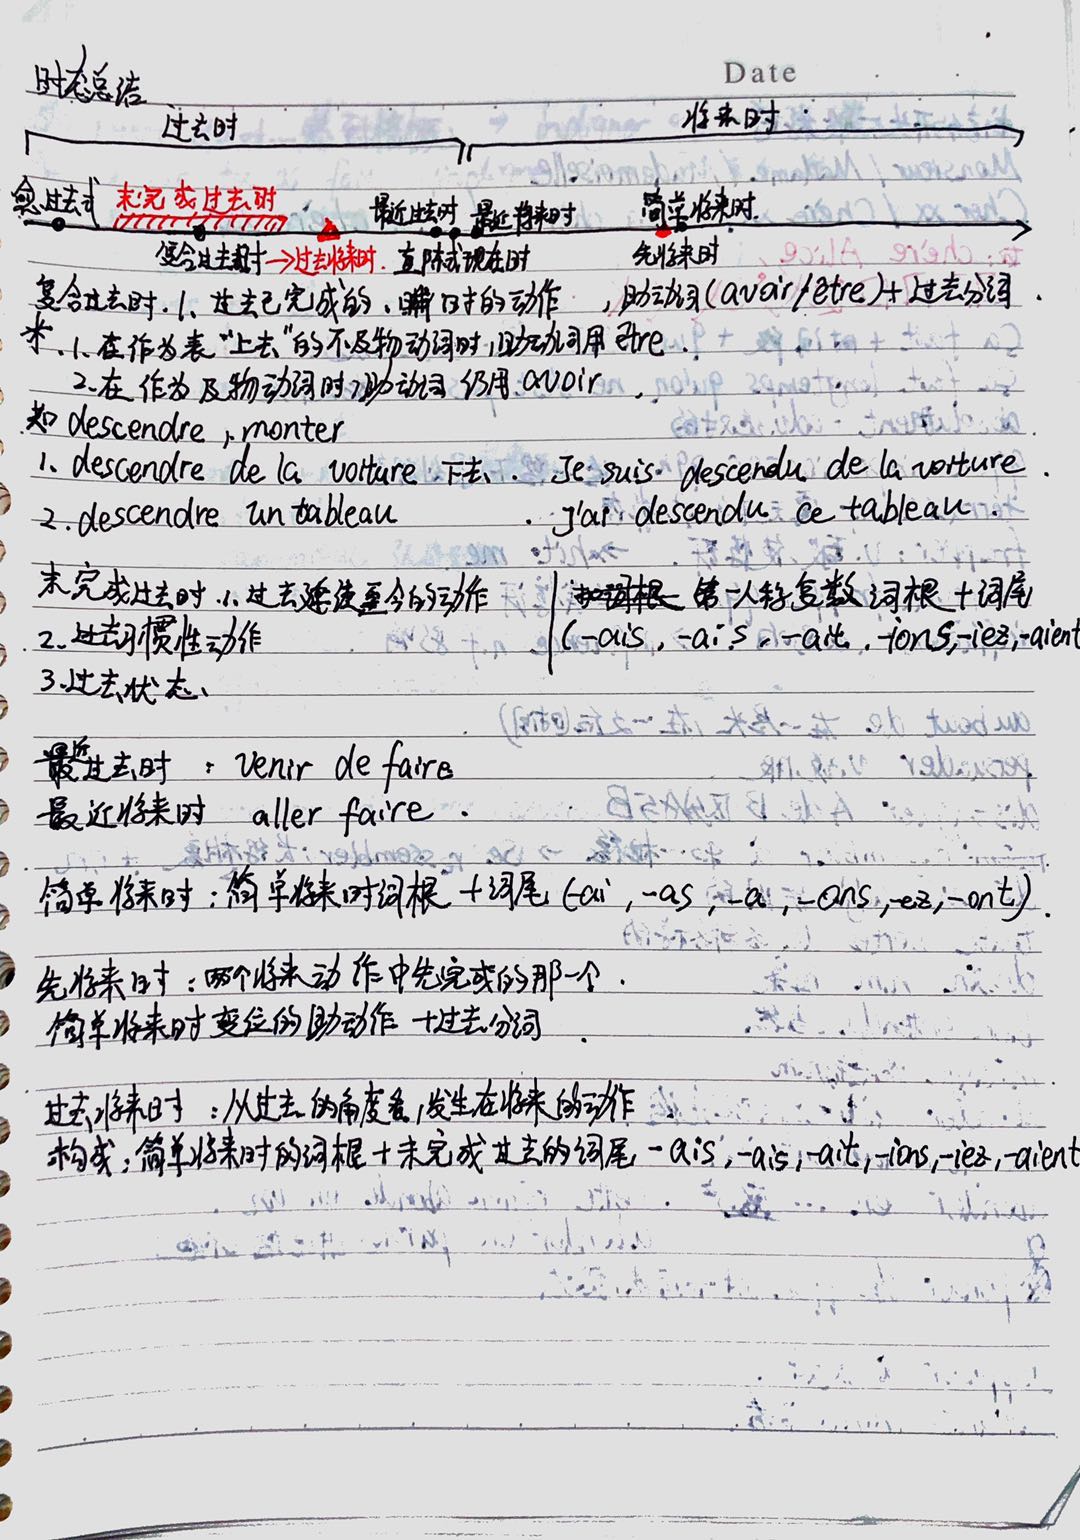 Date
时态总结
过去时 将来时
愈过去式 未完成过去时 最近过去时 最近将来时 简单将来时
复合过去时→过去将来时. 直陈式现在时 先将来时
复合过去时.1、过去已完成的、瞬时的动作 ,助动词(avoir/être)+过去分词.
*.1.在作为表“上去”的不及物动词时,助动词用être.
2.在作为及物动词时,助动词仍用avoir.
如descendre,monter
1. descendre de la voiture 下去. Je suis descendu de la voiture.
2. descendre un tableau . J'ai descendu ce tableau.
未完成过去时.1.过去延续至今的动作 第一人称复数词根+词尾
2.过去习惯性动作 (-ais,-ais,-ait,-ions,-iez,-aient
3.过去状态、
最近过去时:venir de faire
最近将来时 aller faire.
简单将来时:简单将来时词根+词尾(-ai,-as,-a,-ons,-ez,-ont).
先将来时:两个将来动作中先完成的那一个.
简单将来时变位的助动作+过去分词.
过去将来时:从过去的角度看,发生在将来的动作
构成:简单将来时的词根+未完成过去的词尾-ais,-ais,-ait,-ions,-iez,-aient